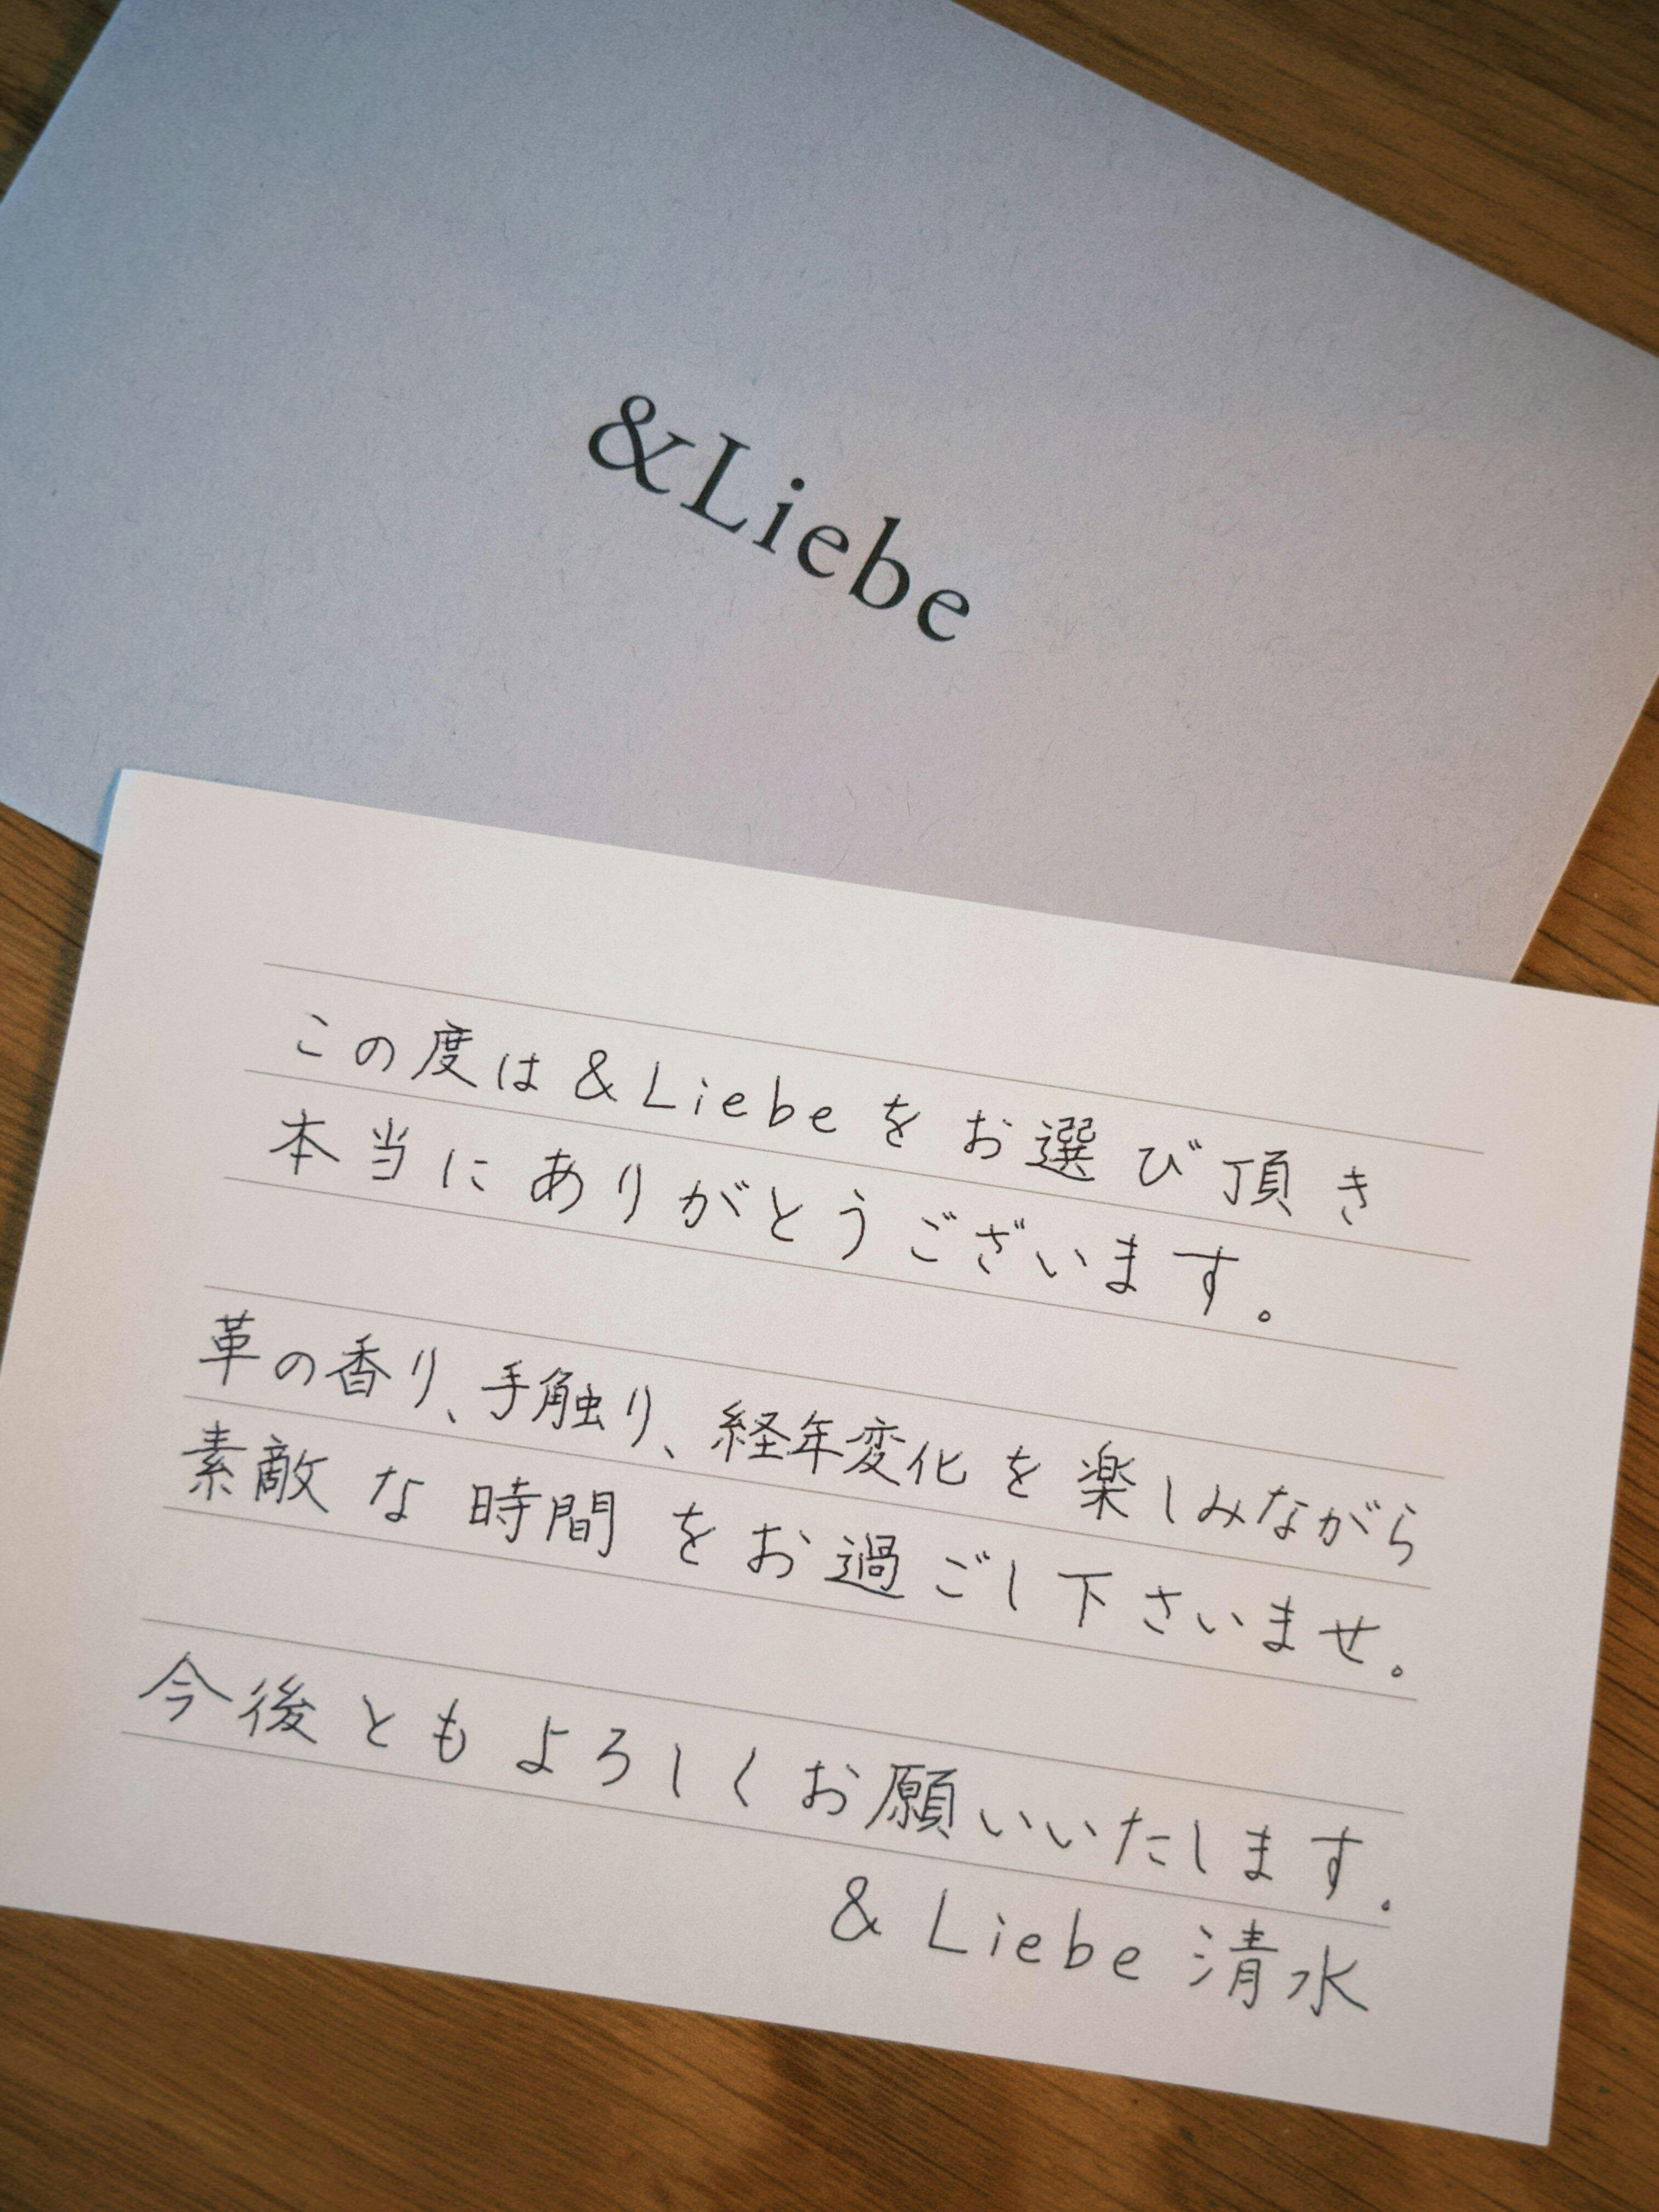 &Liebe
この度は&Liebeをお選び頂き
本当にありがとうございます。
革の香り、手触り、経年変化を楽しみながら
素敵な時間をお過ごし下さいませ。
今後ともよろしくお願いいたします。
& Liebe 清水